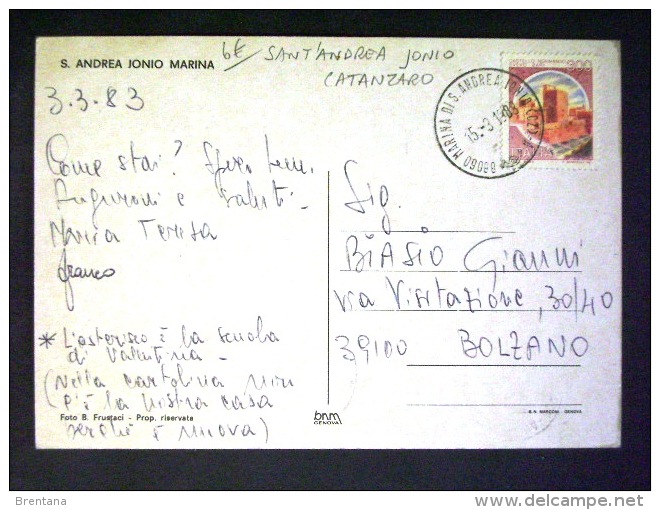 S. ANDREA JONIO MARINA
6€ / SANT'ANDREA JONIO
CATANZARO
3.3.83
Come stai? Spero bene.
Auguroni e saluti -
Maria Teresa
franco
* L'asterisco è la scuola
di Valentina -
(Nella cartolina
c'è la nostra casa
perché è nuova)
Foto B. Frustaci - Prop. riservata
bnm
GENOVA
S.N. MARCONI GENOVA
Sig.
BIASIO Gianni
via Visitazione, 30/40
39100 BOLZANO
88060 MARINA DI S. ANDREA JONIO (CZ)
15.-3.1983
300
ITALIA
Brentana
delcampe.net